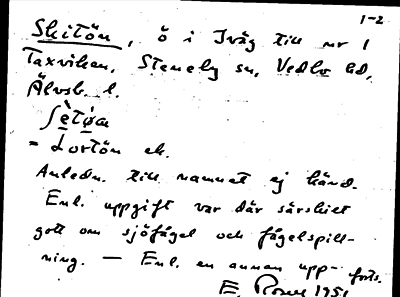 1-2
Skitön, ö i Iväg till nr 1
Taxviken, Steneby sn, Vedbo hd,
Älvsb. l.
= Lortön ek.
Anledn. till namnet ej känd.
Enl. uppgift var där särskilt
gott om sjöfågel och fågelspill-
ning. — Enl. en annan upp- forts.
E. 1951